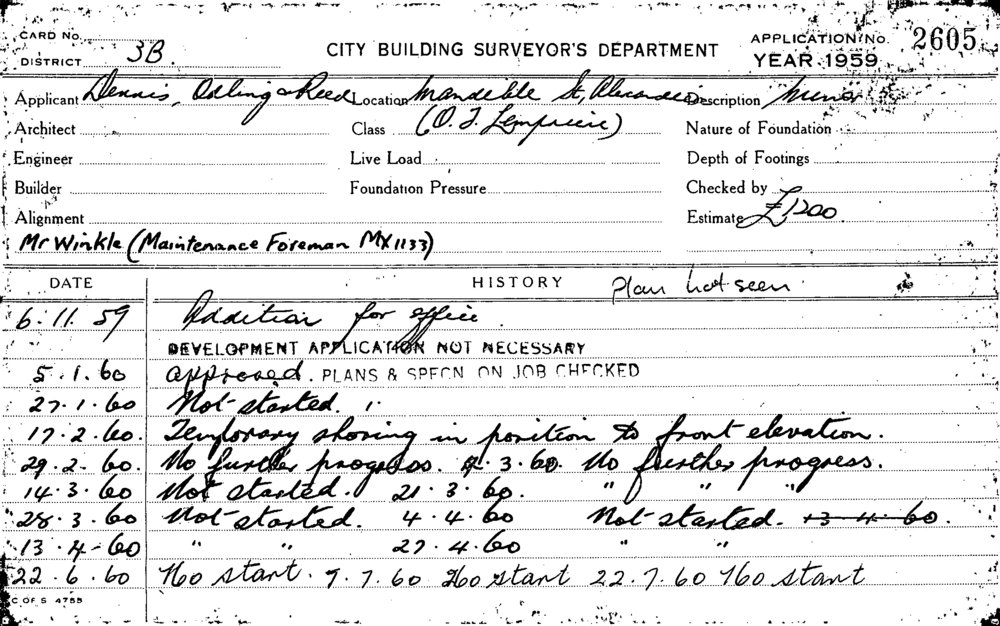 CARD NO.
DISTRICT 3B.
CITY BUILDING SURVEYOR'S DEPARTMENT
APPLICATION NO. 2605
YEAR 1959
Applicant Dennis, Odling & Reed Location Mandible St, Alexandria Description Minor
Architect Class (O. J. Lempriere) Nature of Foundation
Engineer Live Load Depth of Footings
Builder Foundation Pressure Checked by
Alignment Estimate £1200.
Mr Winkle (Maintenance Foreman MX1133)
DATE HISTORY Plan not seen
6.11.59 Addition for office
DEVELOPMENT APPLICATION NOT NECESSARY
5.1.60 Approved. PLANS & SPECN ON JOB CHECKED
27.1.60 Not started.
17.2.60. Temporary shoring in position to front elevation.
29.2.60. No further progress. 9.3.60. No further progress.
14.3.60 Not started. 21.3.60. " " "
28.3.60 Not started. 4.4.60 Not started. 13.4.60.
13.4.60 " " 27.4.60 " "
22.6.60 No start. 7.7.60 No start 22.7.60 No start
C OF S 4755